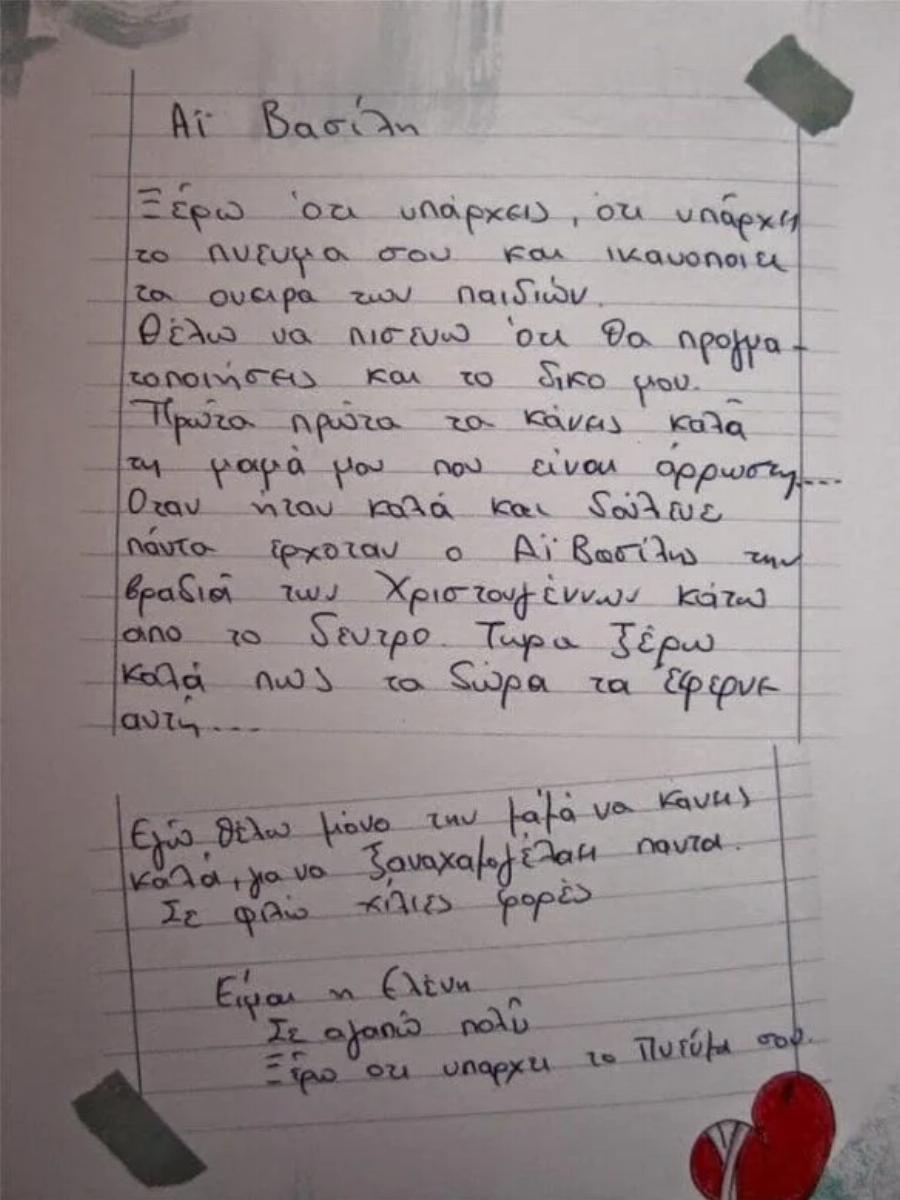 Αϊ Βασίλη
Ξέρω ότι υπάρχεις, ότι υπάρχει
το πνευμα σου και ικανοποιει
τα ονειρα των παιδιών.
Θέλω να πισευω ότι θα πραγμα-
τοποιήσεις και το δικο μου.
Πρώτα πρώτα τα κάνεις καλά
τη μαμά μου που είναι άρρωστη....
Οταν ήταν καλά και δούλευε
πάντα ερχοταν ο Αϊ Βασίλης την
βραδιά των Χριστουγέννων κάτω
απο το δεντρο. Τωρα ξέρω
καλά πως τα δώρα τα έφερνε
αυτή....
Εγώ θέλω μόνο την μαμά να κανεις
καλά, για να ξαναχαμογέλαει παντα.
Σε φιλώ χίλιες φορές
Είμαι η Ελένη
Σε αγαπώ πολύ
Ξέρω οτι υπαρχει το Πνεύμα σου.